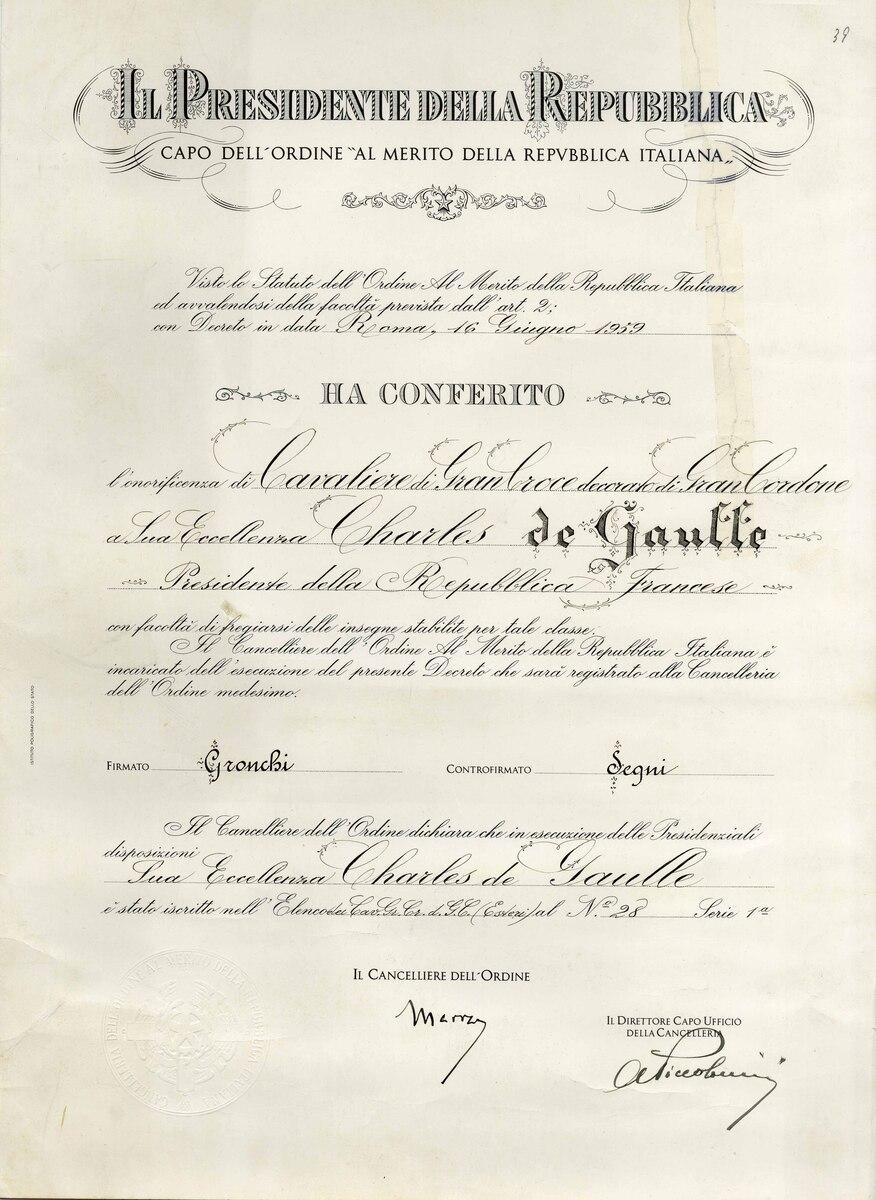 39
IL PRESIDENTE DELLA REPUBBLICA
CAPO DELL'ORDINE "AL MERITO DELLA REPVBBLICA ITALIANA„
Visto lo Statuto dell'Ordine Al Merito della Repubblica Italiana
ed avvalendosi della facoltà prevista dall'art. 2;
con Decreto in data Roma, 16 Giugno 1959
HA CONFERITO
l'onorificenza di Cavaliere di Gran Croce decorato di Gran Cordone
a Sua Eccellenza Charles de Gaulle
Presidente della Repubblica Francese
con facoltà di fregiarsi delle insegne stabilite per tale classe.
Il Cancelliere dell'Ordine Al Merito della Repubblica Italiana è
incaricato dell'esecuzione del presente Decreto che sarà registrato alla Cancelleria
dell'Ordine medesimo.
ISTITUTO POLIGRAFICO DELLO STATO
FIRMATO Gronchi CONTROFIRMATO Segni
Il Cancelliere dell'Ordine dichiara che in esecuzione delle Presidenziali
disposizioni
Sua Eccellenza Charles de Gaulle
è stato iscritto nell'Elenco dei Cav. Gr. Cr. d. G.C. (Esteri) al N.º 28 Serie 1ª
IL CANCELLIERE DELL'ORDINE
IL DIRETTORE CAPO UFFICIO
DELLA CANCELLERIA